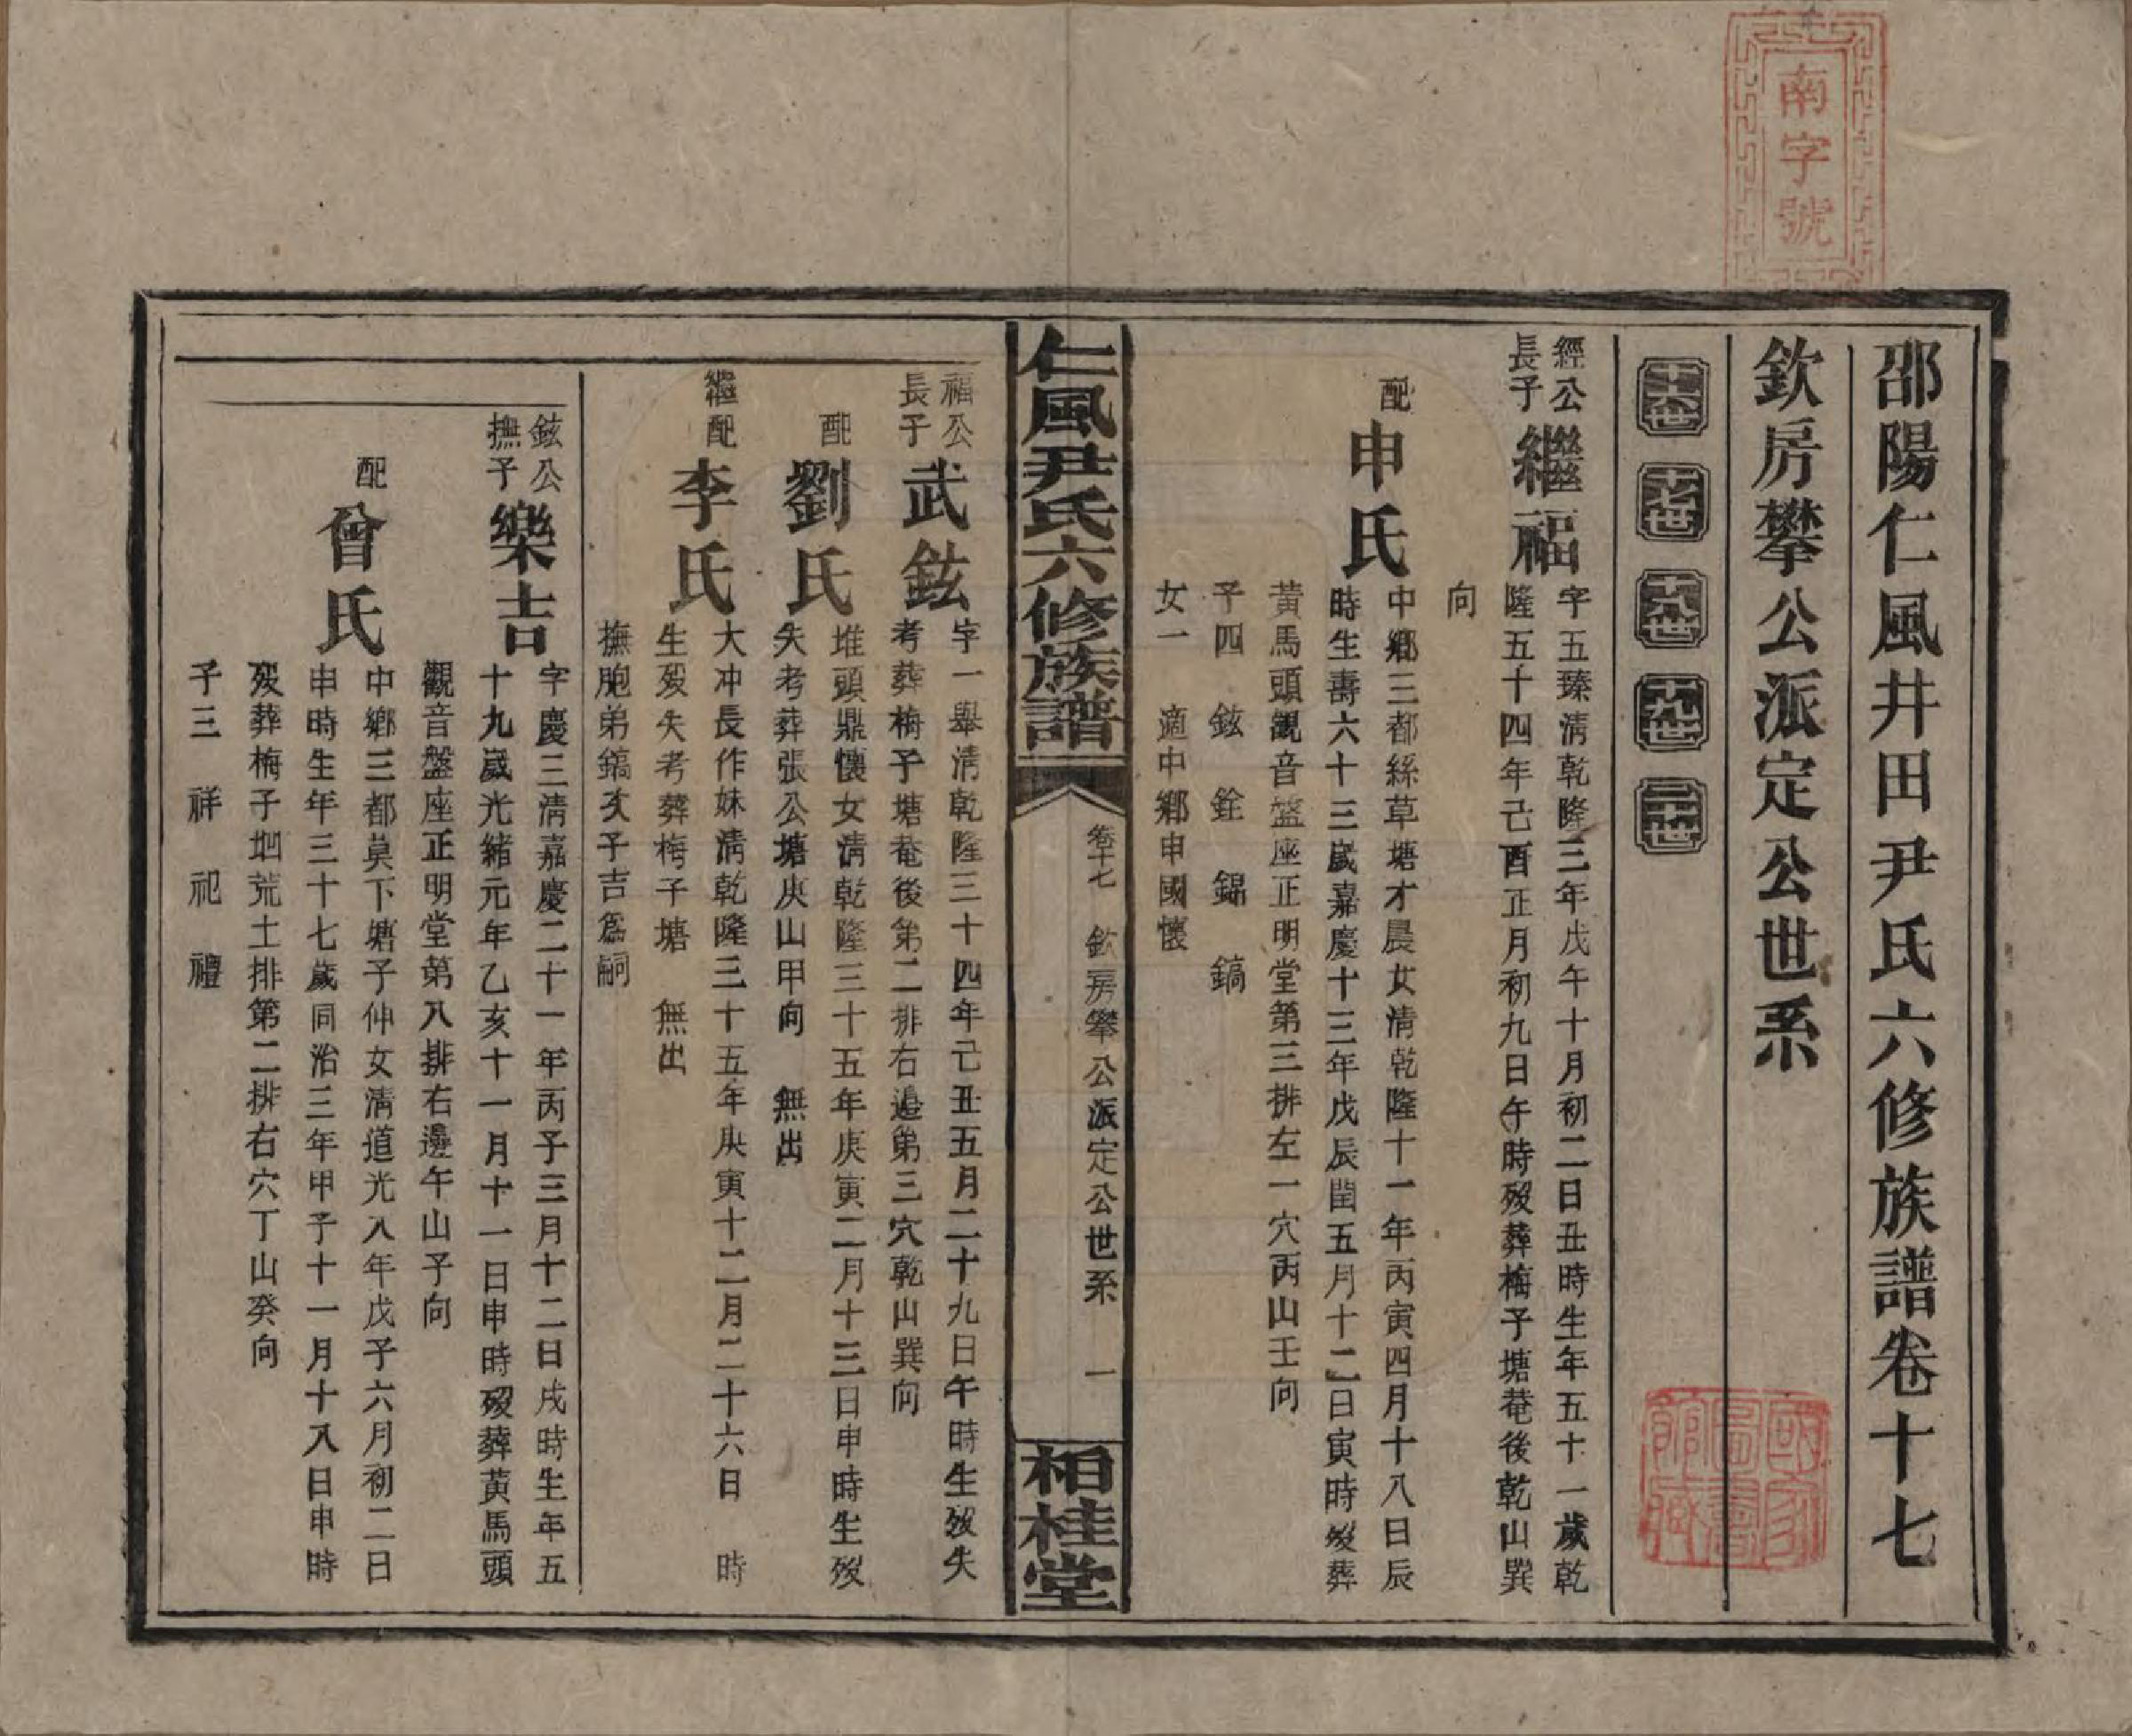 南字號
邵陽仁風井田尹氏六修族譜卷十七
欽房攀公派定公世系
十六世 十七世 十八世 十九世 二十世
經公
長子
繼福
字五臻清乾隆三年戊午十月初二日丑時生年五十一歲乾
隆五十四年己酉正月初九日午時歿葬梅子塘菴後乾山巽
向
配
申氏
中鄉三都絲草塘才晨女清乾隆十一年丙寅四月十八日辰
時生壽六十三歲嘉慶十三年戊辰閏五月十二日寅時歿葬
黃馬頭觀音盤座正明堂第三排左一穴丙山壬向
子四 鉉 銓 錫 鎬
女一 適中鄉申國懷
仁風尹氏六修族譜
卷十七 欽房攀公派定公世系 一
相桂堂
福公
長子
武鉉
字一舉清乾隆三十四年己丑五月二十九日午時生歿失
考葬梅子塘菴後第二排右邊第三穴乾山巽向
配
劉氏
堆頭鼎懷女清乾隆三十五年庚寅二月十三日申時生歿
失考葬張公塘庚山甲向 無出
繼配
李氏
大冲長作妹清乾隆三十五年庚寅十二月二十六日 時
生歿失考葬梅子塘 無出
撫胞弟鎬次子吉爲嗣
鉉公
撫子
樂吉
字慶三清嘉慶二十一年丙子三月十二日戌時生年五
十九歲光緒元年乙亥十一月十一日申時歿葬黃馬頭
觀音盤座正明堂第八排右邊午山子向
配
曾氏
中鄉三都莫下塘子仲女清道光八年戊子六月初二日
申時生年三十七歲同治三年甲子十一月十八日申時
歿葬梅子塏荒土排第二排右穴丁山癸向
子三 祥 祀 禮